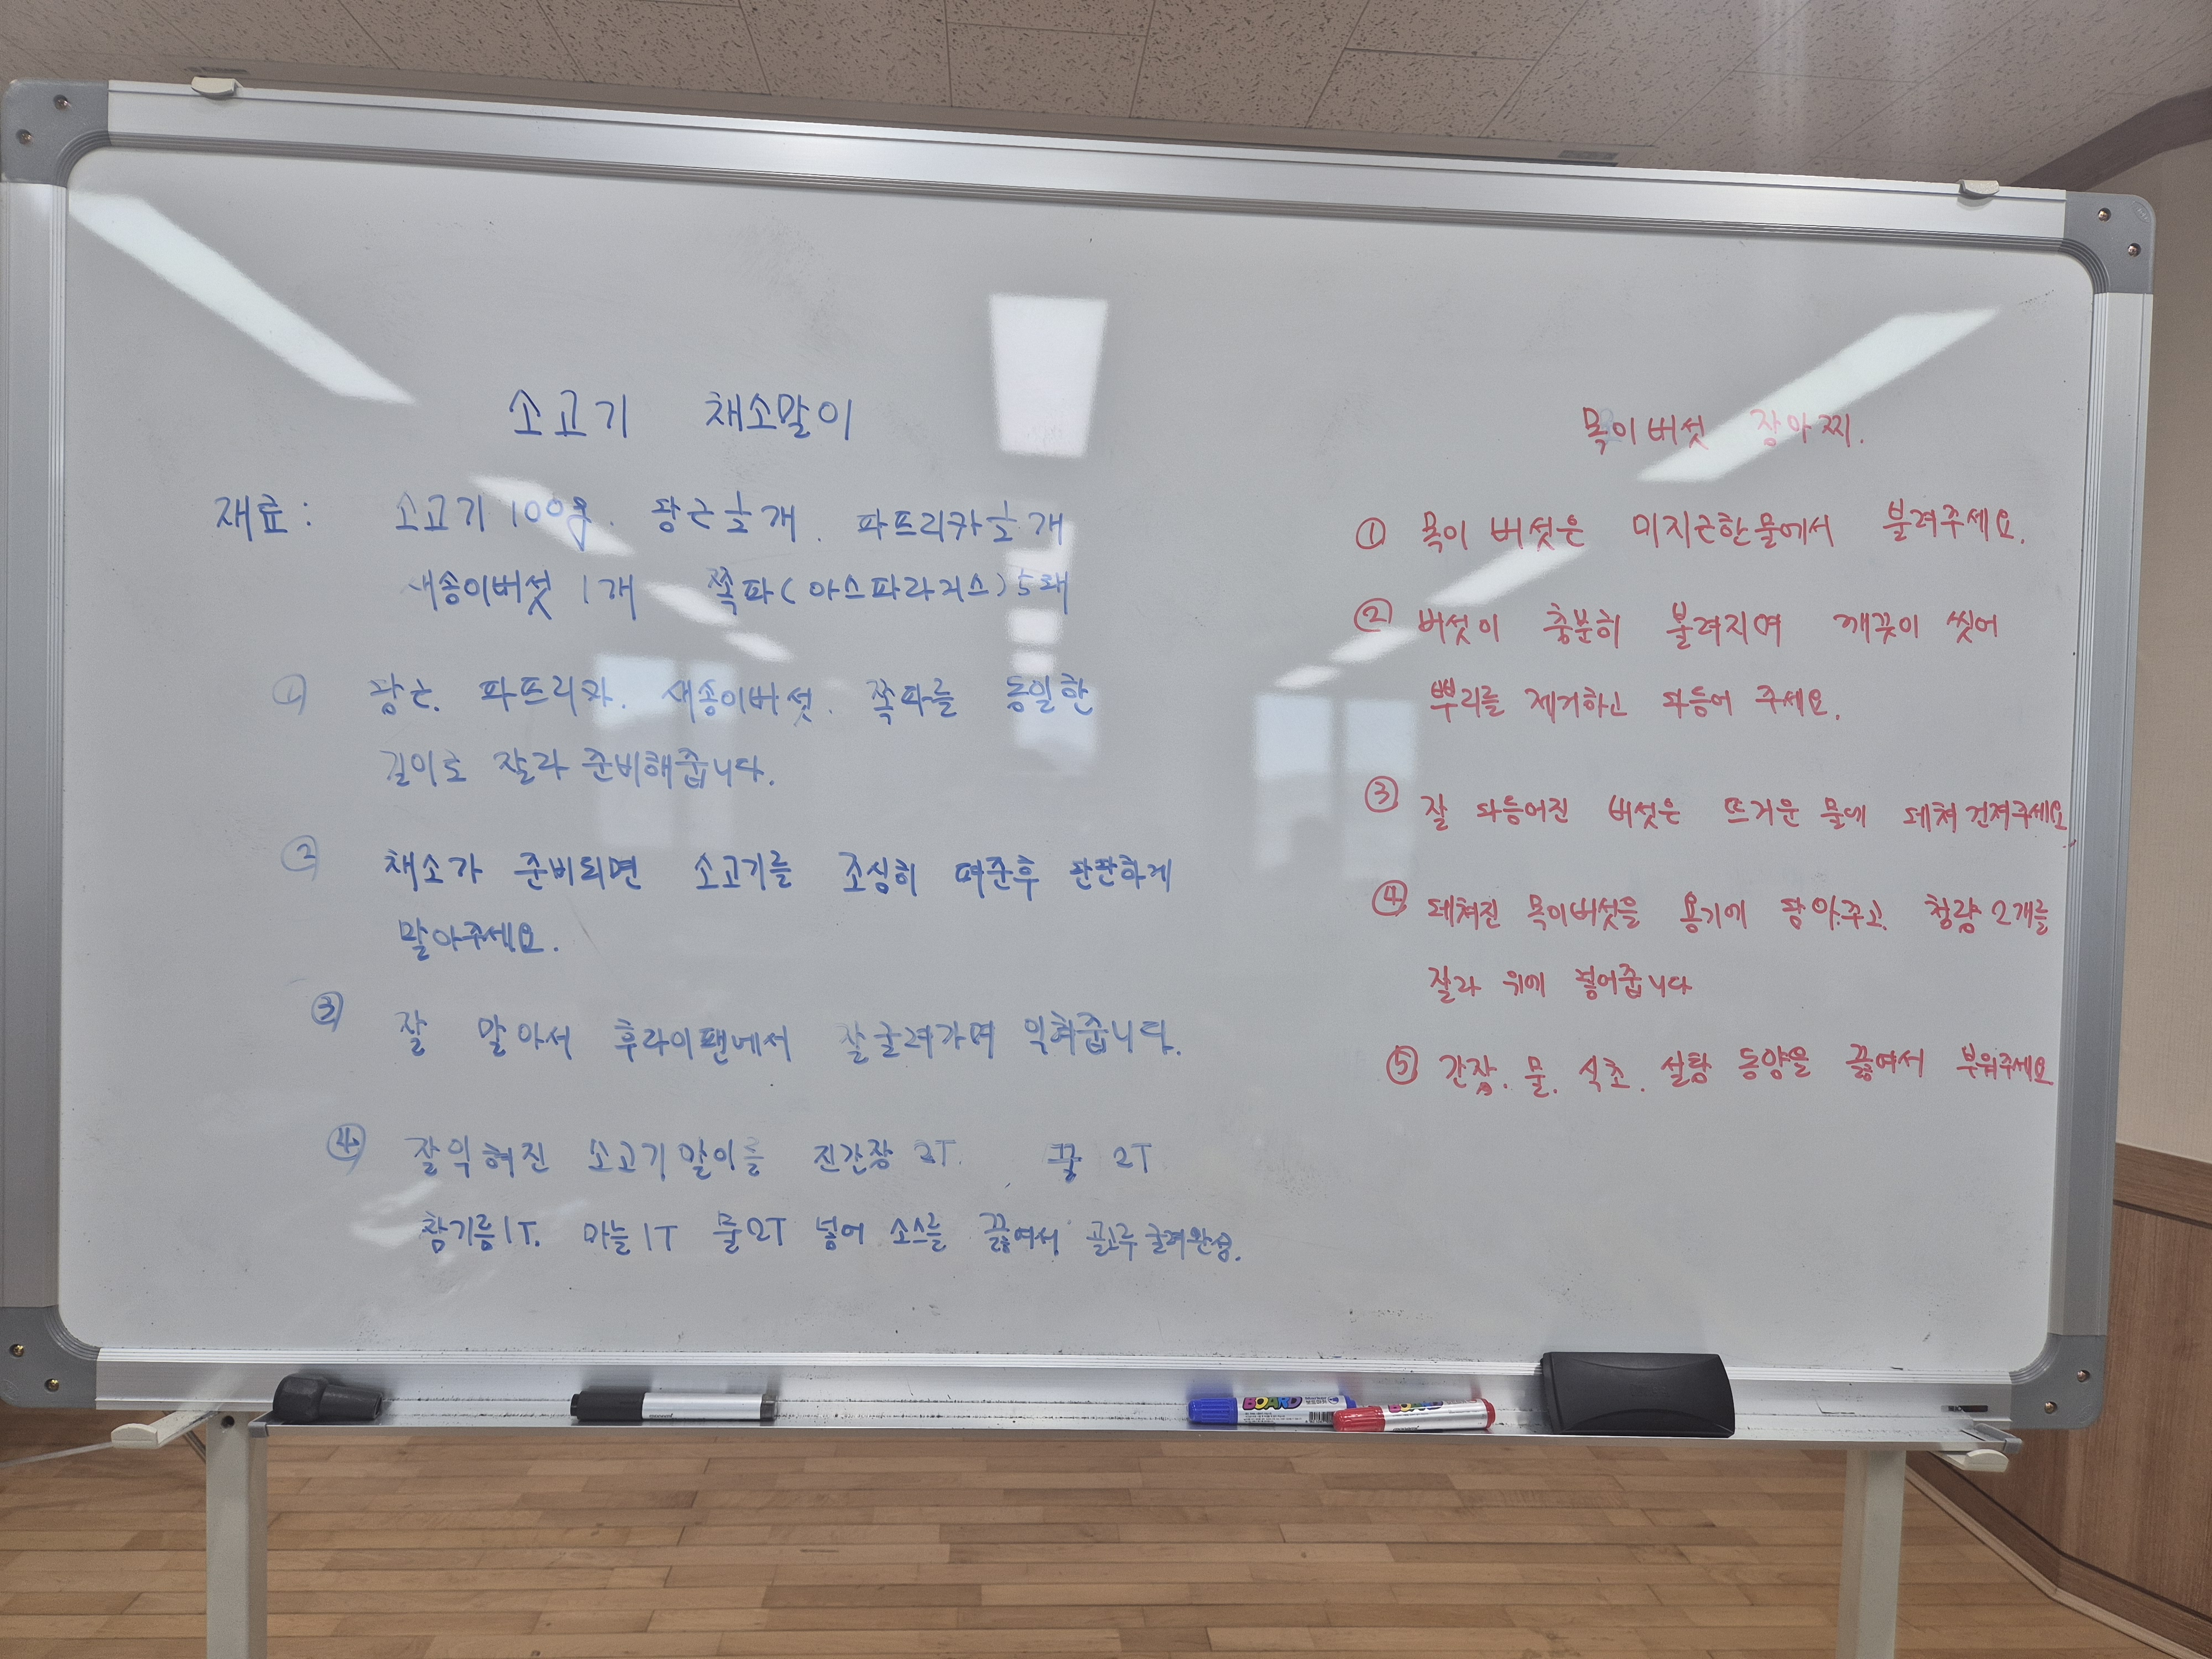 소고기 채소말이
재료 : 소고기 100g. 당근 ½개. 파프리카 ½개
새송이버섯 1개 쪽파(아스파라거스) 5대
① 당근. 파프리카. 새송이버섯. 쪽파를 동일한
길이로 잘라 준비해줍니다.
② 채소가 준비되면 소고기를 조심히 펴준후 단단하게
말아주세요.
③ 잘 말아서 후라이팬에서 잘굴려가며 익혀줍니다.
④ 잘익혀진 소고기말이를 진간장 2T. 꿀 2T
참기름1T. 마늘1T 물2T 넣어 소스를 끓여서 골고루굴려완성.
목이버섯 장아찌.
① 목이 버섯은 미지근한물에서 불려주세요.
② 버섯이 충분히 불려지면 깨끗이 씻어
뿌리를 제거하고 다듬어 주세요.
③ 잘 다듬어진 버섯은 뜨거운 물에 데쳐 건져주세요.
④ 데쳐진 목이버섯을 용기에 담아.주고. 청량2개를
잘라 위에 넣어줍니다
⑤ 간장. 물. 식초. 설탕 동량을 끓여서 부워주세요
BOARD